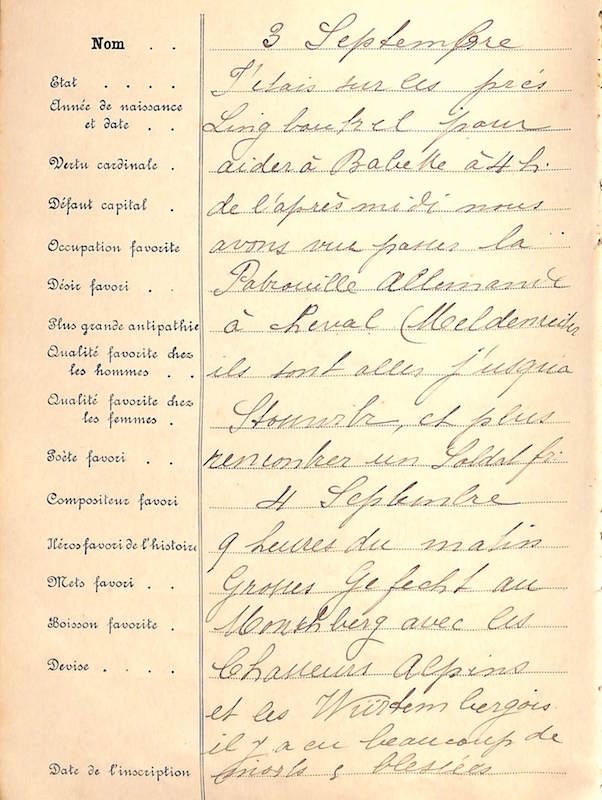 Nom . . 3 Septembre
Etat . . . . J'etais sur les prés
Année de naissance
et date . . Lingboukel pour
Vertu cardinale . aider à Babette à 4 h.
Défaut capital . de l'après midi nous
Occupation favorite avons vue passer la
Désir favori . . Patrouille Allemande
Plus grande antipathie à cheval (Meldenreiter
Qualité favorite chez
les hommes . . ils sont alles j'usqua
Qualité favorite chez
les femmes . et plus
Poète favori . . rencontrer un Soldat fr.
Compositeur favori 4 Septembre
Héros favori de l'histoire 9 heures du matin
Mets favori . . Grosses Gefecht au
Boisson favorite . Monchberg avec les
Devise . . . . Chasseurs Alpins
et les Würtembergois
il y a eu beaucoup de
Date de l'inscription morts & blessées